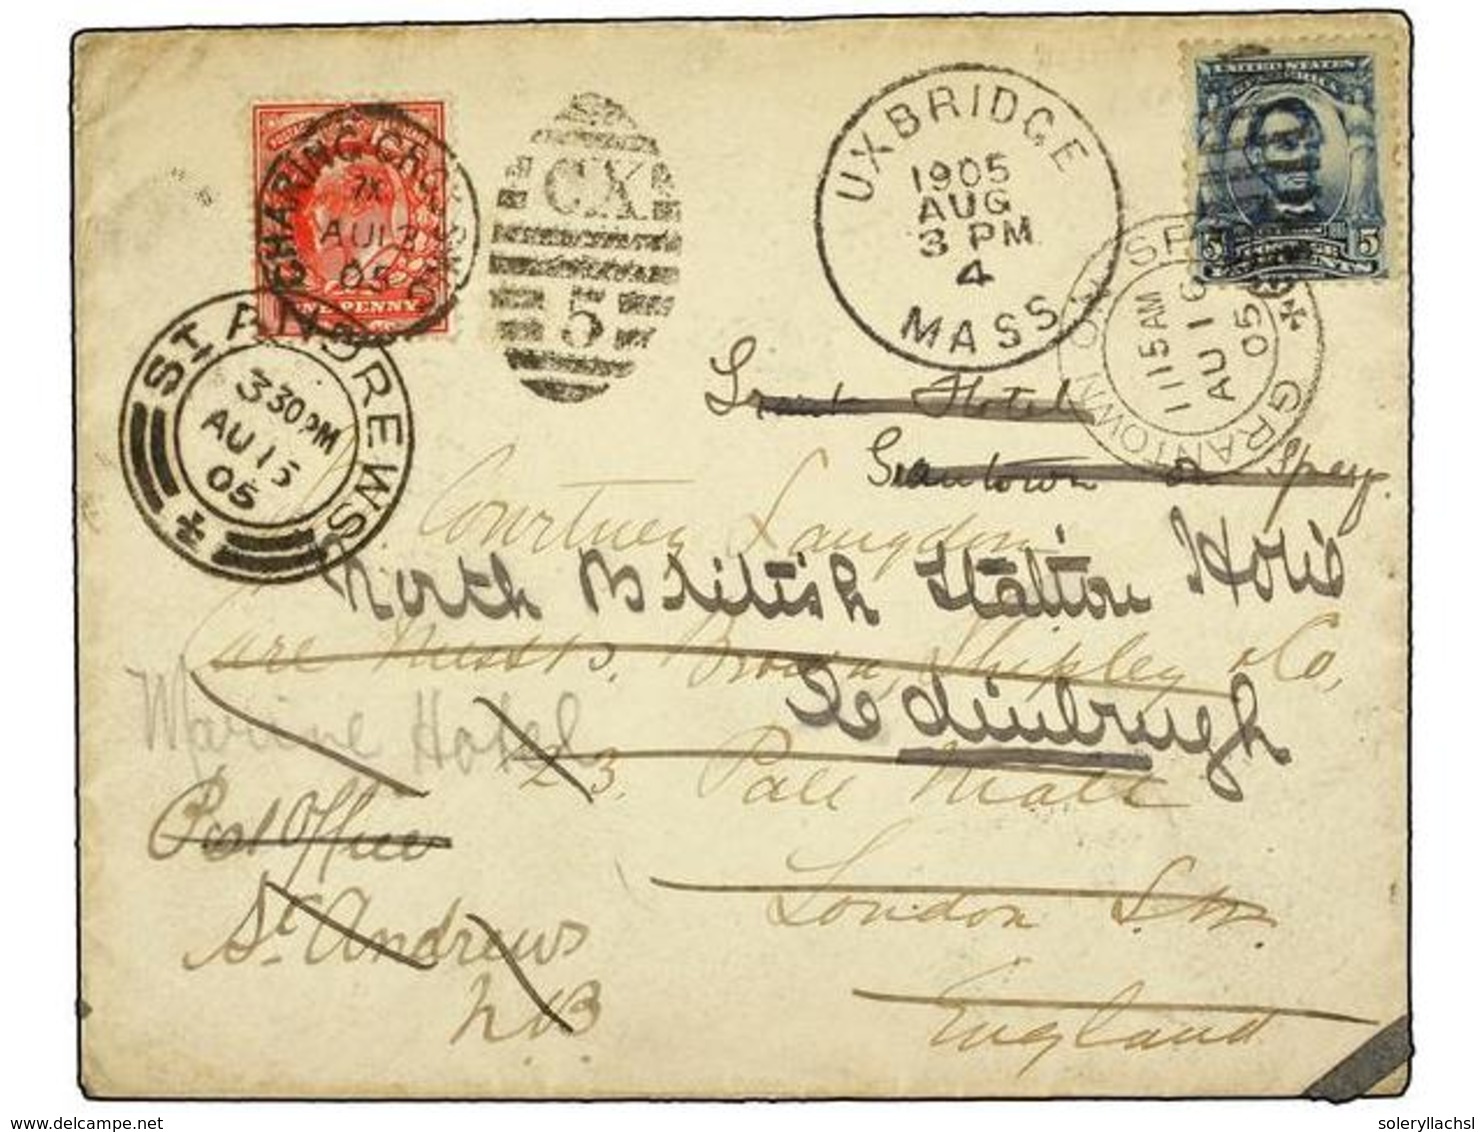 CHARING CROSS
7X
AU 13
05
CX
5
UXBRIDGE
1905
AUG
3 PM
4
MASS
UNITED STATES
5 5
ONE PENNY
ST ANDREWS
3 30 PM
AU 15
05
GRANTOWN ON SPEY
11 15 AM
AU 16
05
Grant Hotel
Grantown on Spey.
Courtney Langdon
North British Station Hotel
Care Messrs. Brown, Shipley & Co,
Edinbrugh
Marine Hotel
123, Pall Mall
Post Office
London S.W.
St Andrews
N.B
England
soleryllachsl